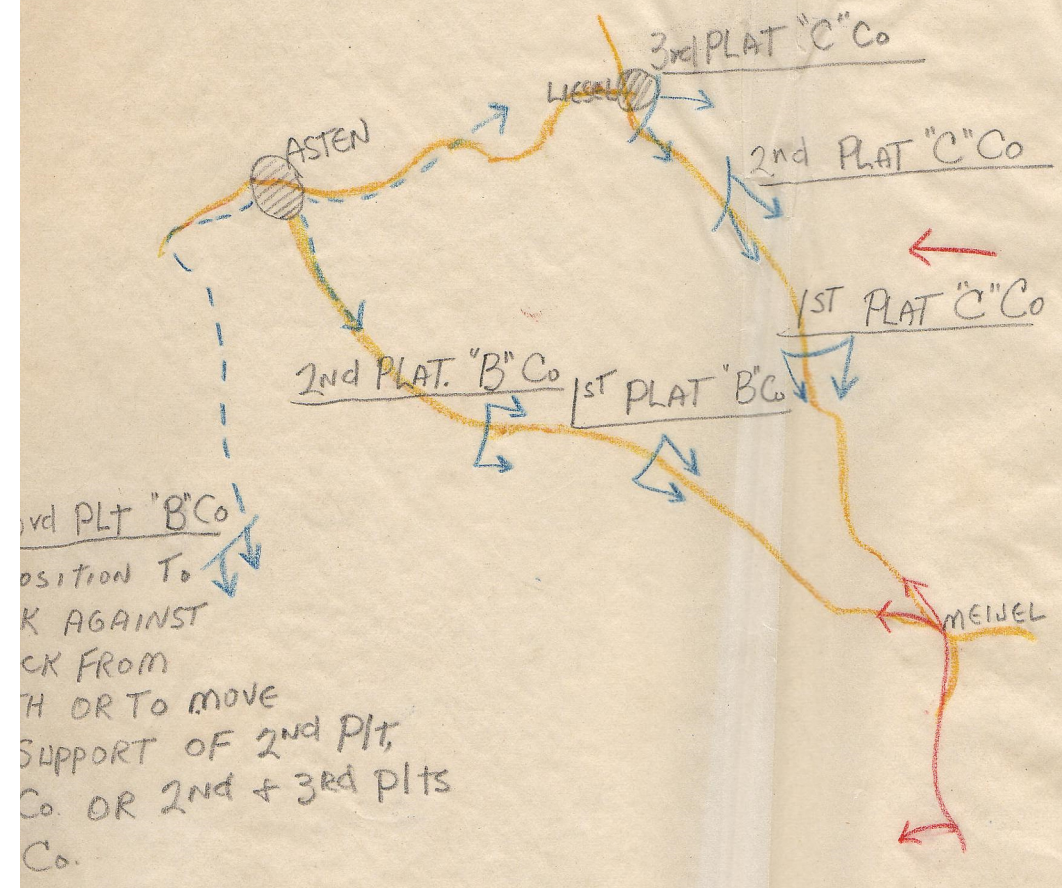 3rd PLAT "C" Co
LIESEL
ASTEN
2nd PLAT "C" Co
1ST PLAT "C" Co
2nd PLAT. "B" Co
1ST PLAT "B" Co
rd PLt "B" Co
OSITION TO
K AGAINST
CK FROM
TH OR TO MOVE
SUPPORT OF 2nd Plt,
Co. OR 2nd + 3Rd plts
Co.
MEIJEL